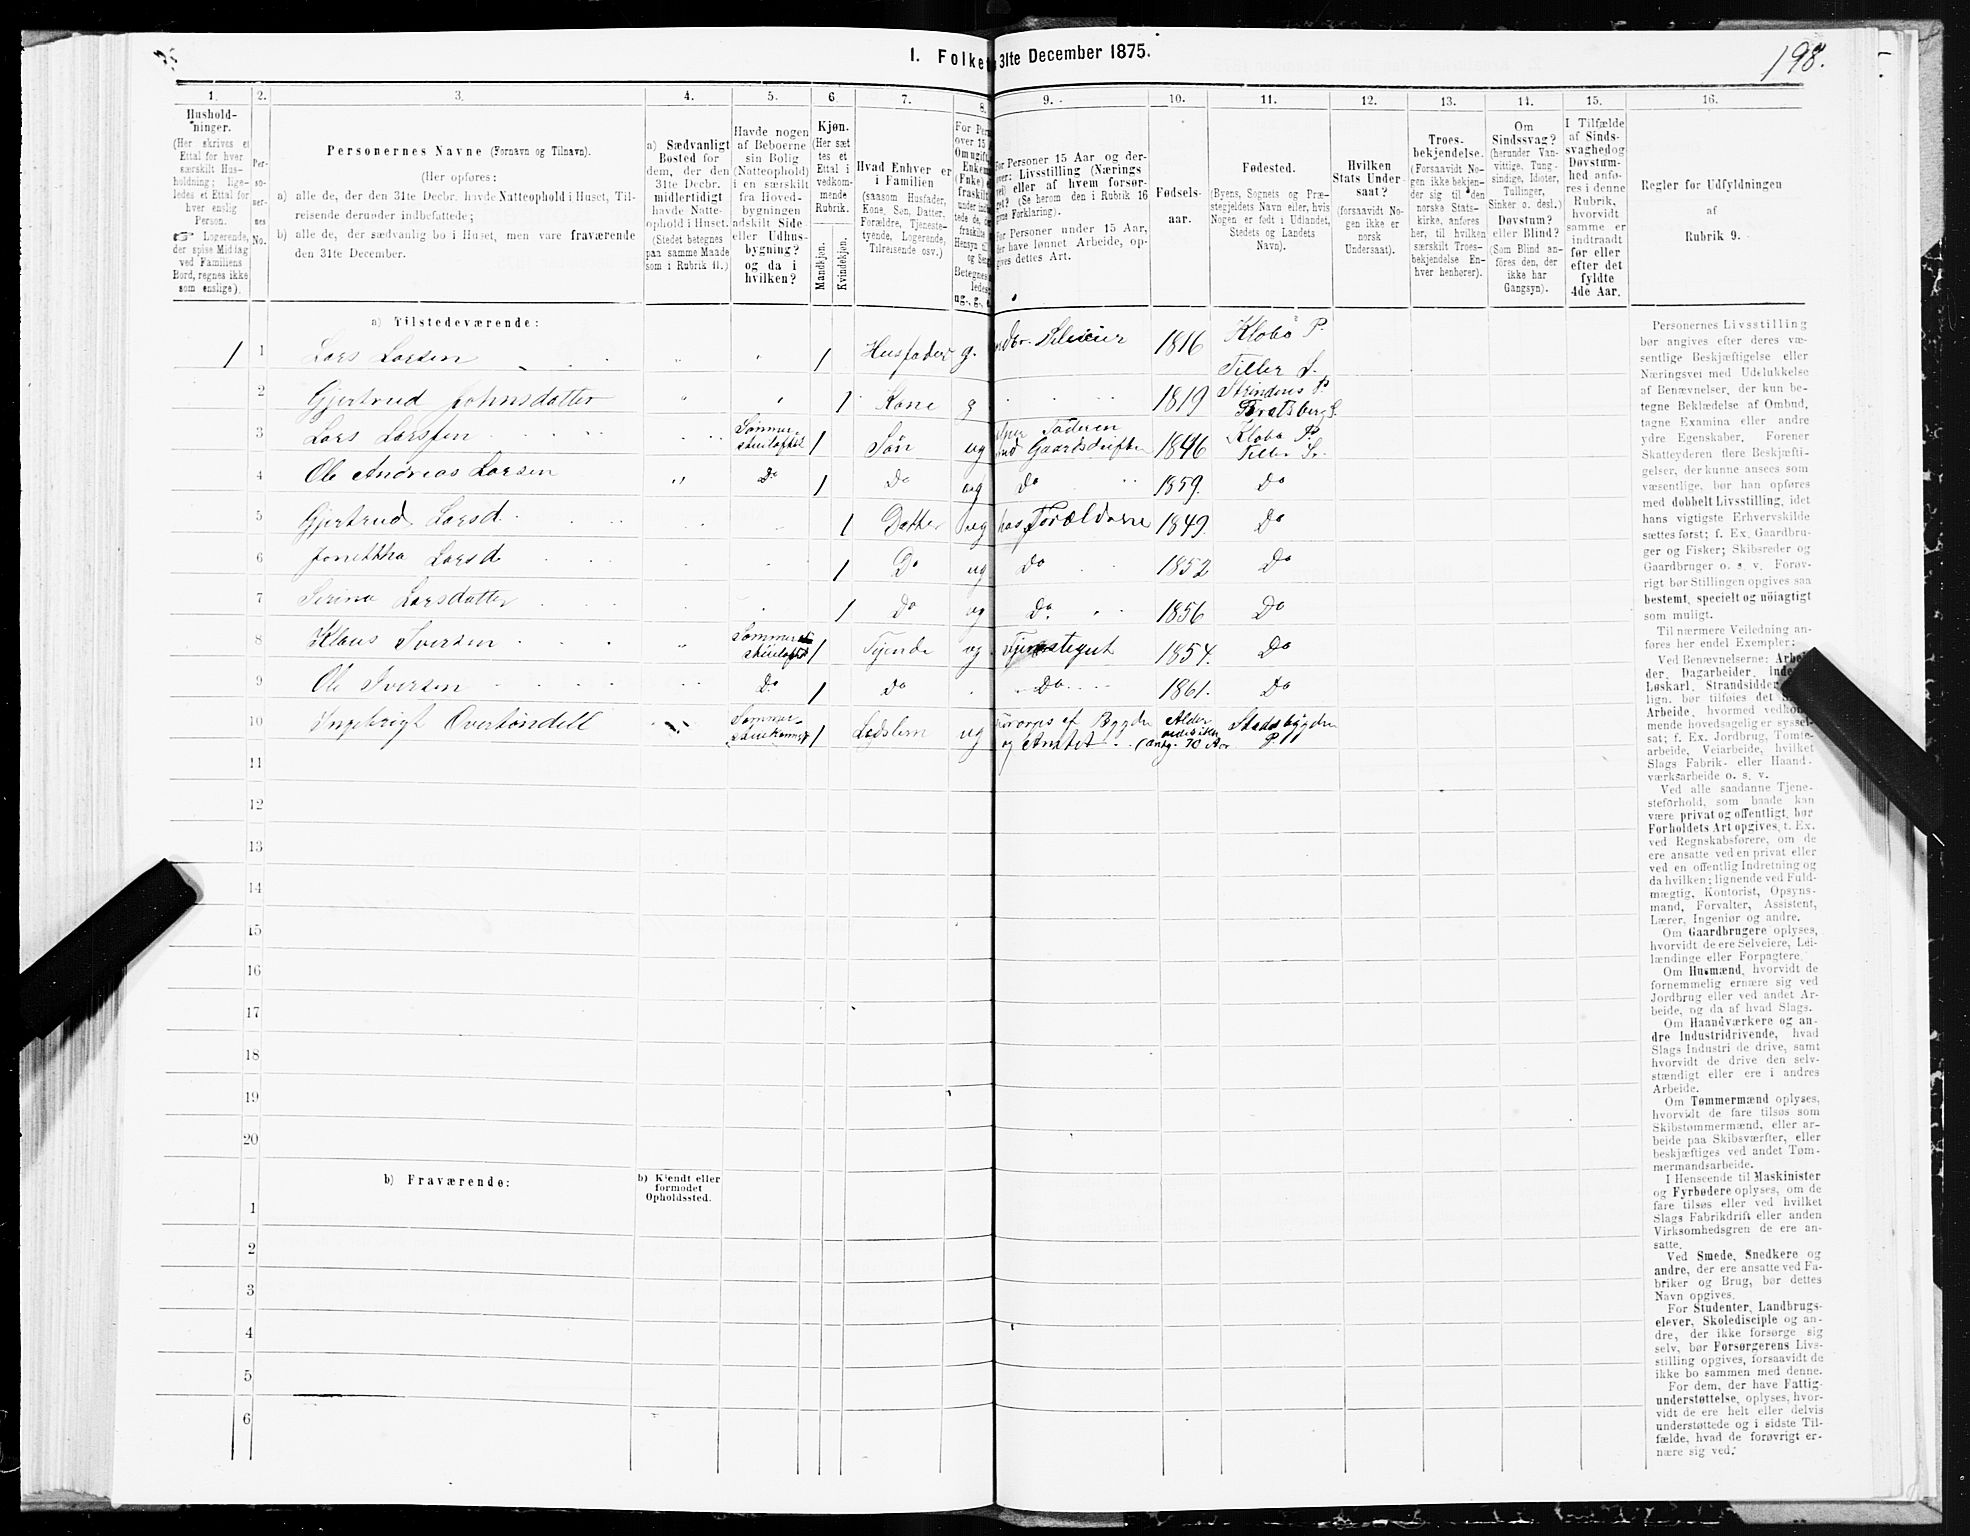 I. Folke 31te December 1875.
198.
1. 2. 3. 4. 5. 6 7. 8. 9. 10. 11. 12. 13. 14. 15. 16.
Hushold-
ninger.
(Her skrives et
Ettal for hver
særskilt Hus-
holdning; lige-
ledes et Ettal for
hver enslig
Person.
☞ Logerende,
der spise Middag
ved Familiens
Bord, regnes ikke
som enslige).
Per-
so-
ner-
nes
No.
Personernes Navne (Fornavn og Tilnavn).
(Her opføres:
a) alle de, der den 31te Decbr. havde Natteophold i Huset, Til-
reisende derunder indbefattede;
b) alle de, der sædvanlig bo i Huset, men vare fraværende
den 31te December.
a) Sædvanligt
Bosted for
dem, der den
31te Decbr.
midlertidigt
havde Natte-
ophold i Huset.
(Stedet betegnes
paa samme Maade
som i Rubrik 11.)
Havde nogen
af Beboerne
sin Bolig
(Natteophold)
i en særskilt
fra Hoved-
bygningen
adskilt Side-
eller Udhus-
bygning?
og da i
hvilken?
Kjøn.
(Her sæt
tes et
Ettal i
vedkom-
mende
Rubrik.
Mandkjøn.
Kvindekjøn.
Hvad Enhver er
i Familien
(saasom Husfader,
Kone, Søn, Datter,
Forældre, Tjeneste-
tyende, Logerende,
Tilreisende osv.)
For Per
over 15
Om ugift
Enkem
(Enke) e
fraskilt
under ind
tede de,
fraskilte
Hensyn
og Sen
Betegnes
ledes
ug., g.,
For Personer 15 Aar og der-
over: Livsstilling (Nærings
vei) eller af hvem forsør-
get? (Se herom den i Rubrik 16
givne Forklaring).
For Personer under 15 Aar,
der have lønnet Arbeide, op-
gives dettes Art.
Fødsels-
aar.
Fødested.
(Byens, Sognets og Præ-
stegjeldets Navn eller, hvis
Nogen er født i Udlandet,
Stedets og Landets
Navn).
Hvilken
Stats Under-
saat?
(forsaavidt No-
gen ikke er
norsk
Undersaat).
Troes-
bekjendelse.
(Forsaavidt No-
gen ikke bekjen-
der sig til den
norske Stats-
kirke, anføres
her, til hvilken
særskilt Troes-
bekjendelse En-
hver henhører).
Om
Sindssvag?
(herunder Van-
vittige, Tung-
sindige, Idioter,
Tullinger,
Sinker o. desl.)
Døvstum?
eller Blind?
(Som Blind an-
føres den, der
ikke har
Gangsyn).
I Tilfælde
af Sinds-
svaghed og
Døvstum-
hed anfø-
res i denne
Rubrik,
hvorvidt
samme er
indtraadt
før eller
efter det
fyldte
4de Aar.
Regler for Udfyldningen
af
Rubrik 9.
a) Tilstedeværende:
1 1 Lars Larsen 1 Husfader g. Selveier 1816 Klæbo P.
Tiller S.
2 Gjertrud Johnsdatter 1 Kone g 1819 Strindens P.
Bratsberg S.
3 Lars Larssen 1 Søn ug Faderen
Gaardsdriften 1846 Klæbo P.
Tiller S.
4 Ole Andreas Larsen Do 1 Do ug Do 1859. Do
5 Gjertrud Larsd. 1 Datter ug hos Forældrene 1849. Do
6 Larsd 1 Do ug Do 1852 Do
7 Serina Larsdatter 1 Do ug Do. 1856 Do
8 Klaus Iversen 1 Tjende ug 1854. Do
9 Ole Iversen Do 1 Do Do 1861. Do
10 Ingebrigt 1 Lægdslem ug af Bygden
og Amtet. Alder
(antg. 70 Aar Stadsbygden
P.
11
12
13
14
15
16
17
18
19
20
b) Fraværende:
b) Kjendt eller
formodet
Opholdssted.
1
2
3
4
5
6
Personernes Livsstilling
bør angives efter deres væ-
sentlige Beskjæftigelse eller
Næringsvei med Udelukkelse
af Benævnelser, der kun be-
tegne Beklædelse af Ombud,
tagne Examina eller andre
ydre Egenskaber. Forener
Skatteyderen flere Beskjæfti-
gelser, der kunne ansees som
væsentlige, bør han opføres
med dobbelt Livsstilling, idet
hans vigtigste Erhvervskilde
sættes først; f. Ex. Gaardbru-
ger og Fisker; Skibsreder og
Gaardbruger o. s. v. Forøv-
rigt bør Stillingen opgives saa
bestemt, specielt og nöiagtigt
som muligt.
Til nærmere Veiledning an-
føres her endel Exempler:
Ved Benævnelserne: Arbei-
der, Dagarbeider, Inde
Løskarl, Strandsidder
lign. bør tilføies det S
Arbeide, hvormed vedkom-
mende hovedsagelig er syssel-
sat; f. Ex. Jordbrug, Tomte-
arbeide, Veiarbeide, hvilket
Slags Fabrik- eller Haand-
værksarbeide o. s. v.
Ved alle saadanne Tjene-
steforhold, som baade kan
være privat og offentligt, bør
Forholdets Art opgives, t. Ex.
ved Regnskabsførere, om de
ere ansatte ved en privat eller
ved en offentlig Indretning og
da hvilken; lignende ved Fuld-
mægtig, Kontorist, Opsyns-
mand, Forvalter, Assistent,
Lærer, Ingeniør og andre.
Om Gaardbrugere oplyses,
hvorvidt de ere Selveiere, Lei-
lændinge eller Forpagtere.
Om Husmænd, hvorvidt de
fornemmelig ernære sig ved
Jordbrug eller ved andet Ar-
beide, og da af hvad Slags.
Om Haandværkere og an-
dre Industridrivende, hvad
Slags Industri de drive, samt
hvorvidt de drive den selv-
stændigt eller ere i andres
Arbeide.
Om Tømmermænd oplyses,
hvorvidt de fare tilsøs som
Skibstømmermænd, eller ar-
beide paa Skibsværfter, eller
beskjæftiges ved andet Tøm-
mermandsarbeide.
I Henseende til Maskinister
og Fyrbødere oplyses, om de
fare tilsøs eller ved hvilket
Slags Fabrikdrift eller anden
Virksomhedsgren de ere an-
satte.
Ved Smede, Snedkere og
andre, der ere ansatte ved Fa-
briker og Brug, bør dettes
Navn opgives.
For Studenter, Landbrugs-
elever, Skoledisciple og an-
dre, der ikke forsørge sig
selv, bør Forsørgerens Livs-
stilling opgives, forsaavidt de
ikke bo sammen med denne.
For dem, der have Fattig-
understøttelse, oplyses, hvor-
vidt de ere helt eller delvis
understøttede og i sidste Til-
fælde, hvad de forøvrigt er-
nære sig ved.